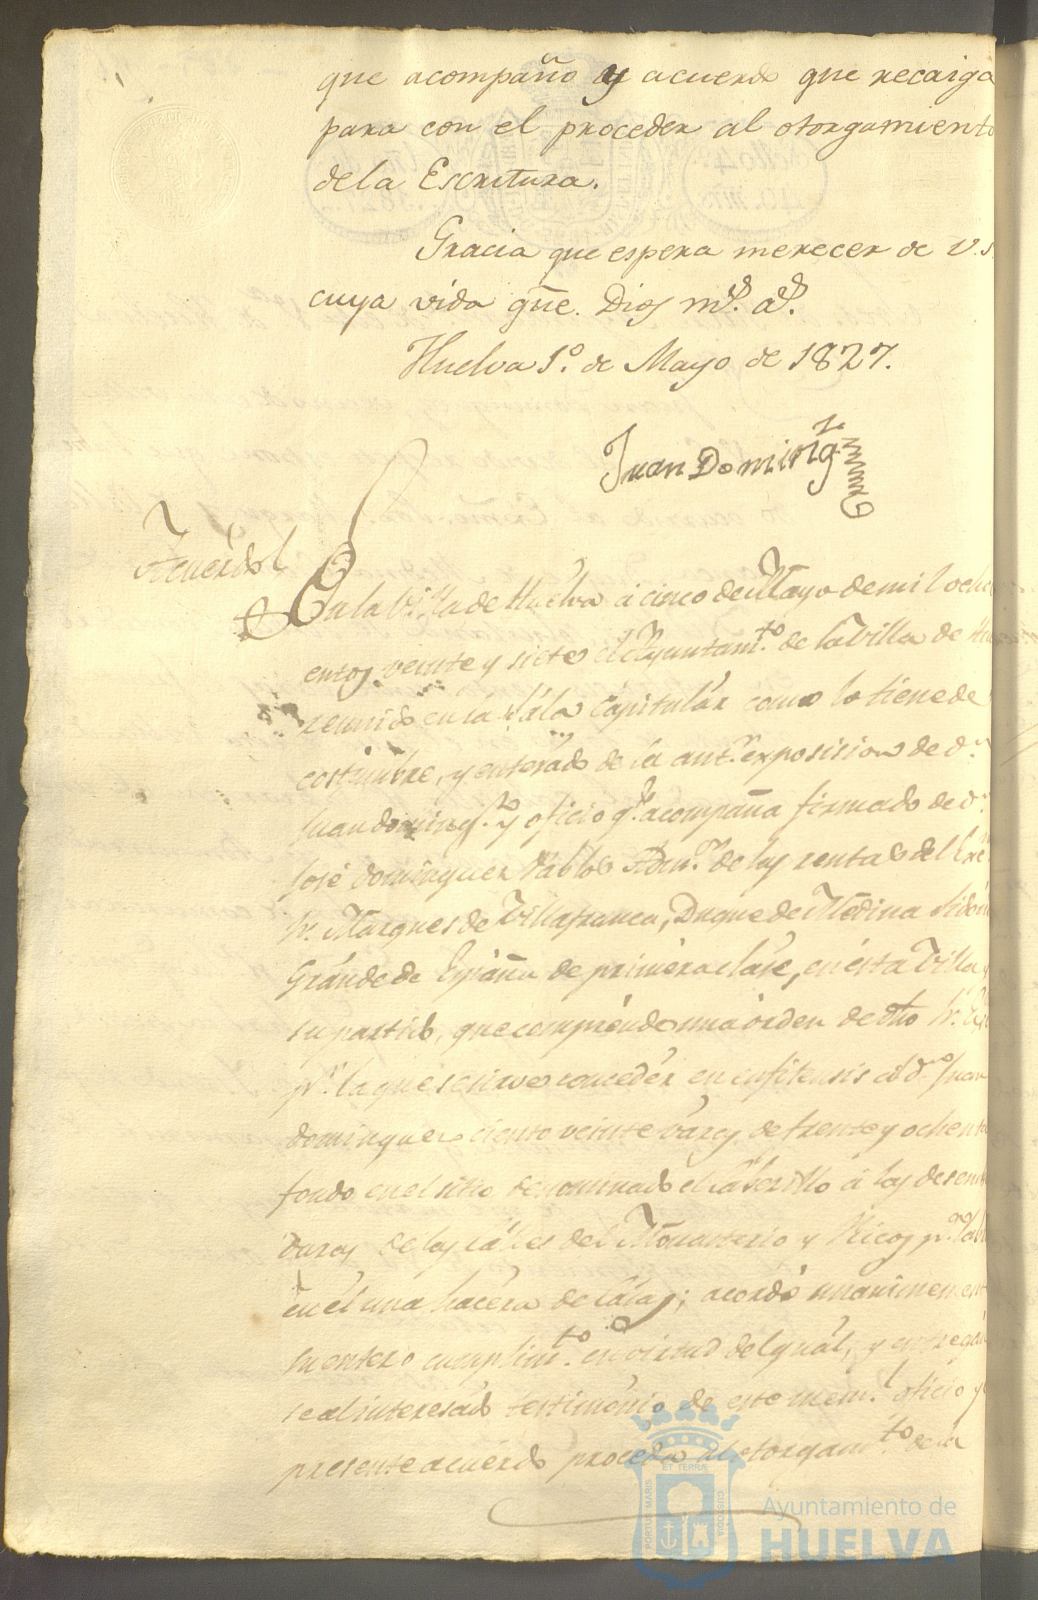 que acompaño y acuerdo que recaiga
para con el proceder al otorgamiento
dela Escritura.
Gracia que espera merecer de V.S.
cuya vida gũe. Dios m.s a.s
Huelva 1.º de Mayo de 1827.
Juan Doming.z
Acuerdo
En la Villa de Huelva á cinco de Mayo de mil ochoci
entos veinte y siete el Ayuntam.to de la Villa de
reunido en la Sala Capitular como lo tiene de
costumbre, y enterado de la ant.r exposision de d.n
Juan doming.z y oficio q.e acompaña firmado de d.n
José dominguez Pablos Adm.or de las rentas del
Sr. Marques de Villafranca, Duque de Medina Sidonia
Grande de España de primera clase, en ésta Villa y
su partido, que comprénde una órden de dho Sr.
p.r la que se sirve concedér en enfiteusis á d.n Juan
dominguez ciento veinte varas de frente y ochenta
fondo en el sitio denominado el á las
varas de las cálles del Monasterio y Ricos p.a
en él una hacera de Cásas; acordó unanimement
su entero cumplim.to en virtud del qual, y entregan
se al interesado testimónio de este mem.l oficio y
presente acuérdo proceda al otorgam.to de la
PORTUS MARIS ET TERRÆ CUSTODIA
Ayuntamiento de
HUELVA